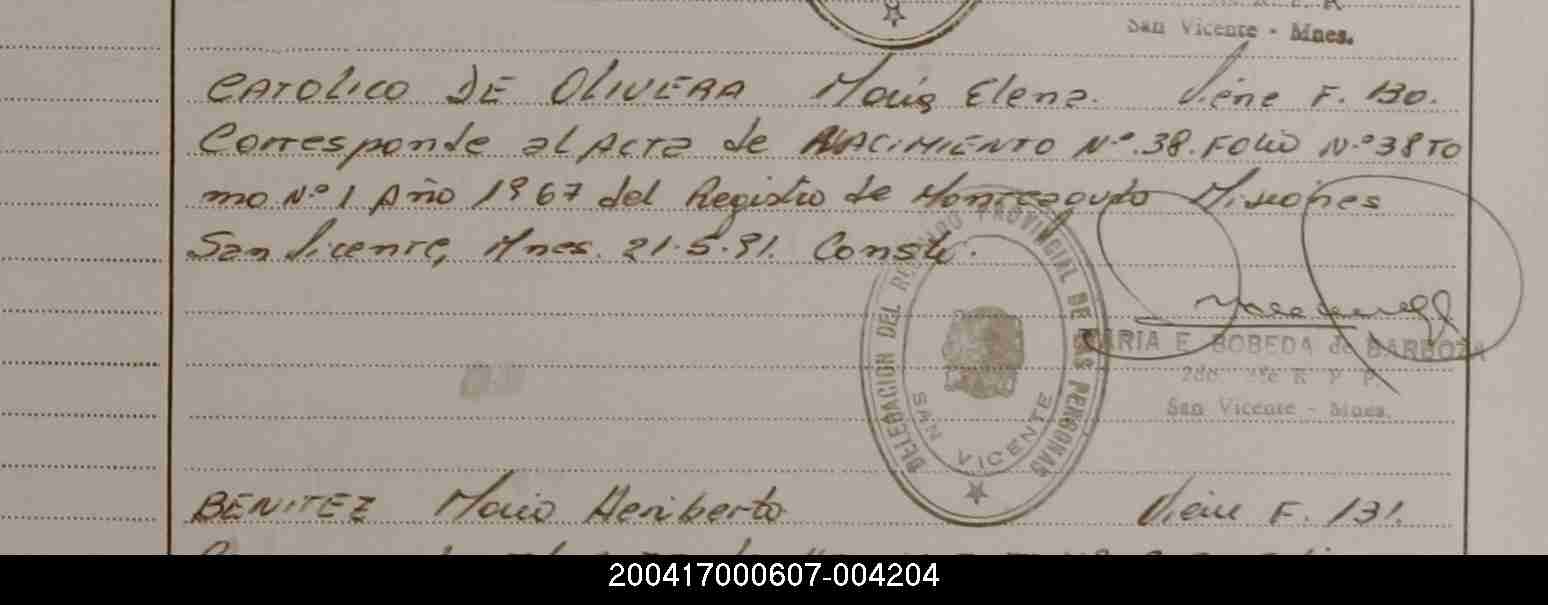 San Vicente - Mnes.
CATOLICO DE OLIVERA María Elena. Viene F. 130.
Corresponde al Acta de NACIMIENTO Nº. 38. FOLIO Nº 38 TO
mo Nº 1 Año 1967 del Registro de Montecarlo Misiones
San Vicente, Mnes. 21.5.91. Conste.
DELEGACION DEL REGISTRO PROVINCIAL DE LAS PERSONAS
SAN VICENTE
MARIA E. BOBEDA de BARBOZA
San Vicente - Mnes.
BENITEZ Mario Heriberto Viene F. 131.
200417000607-004204